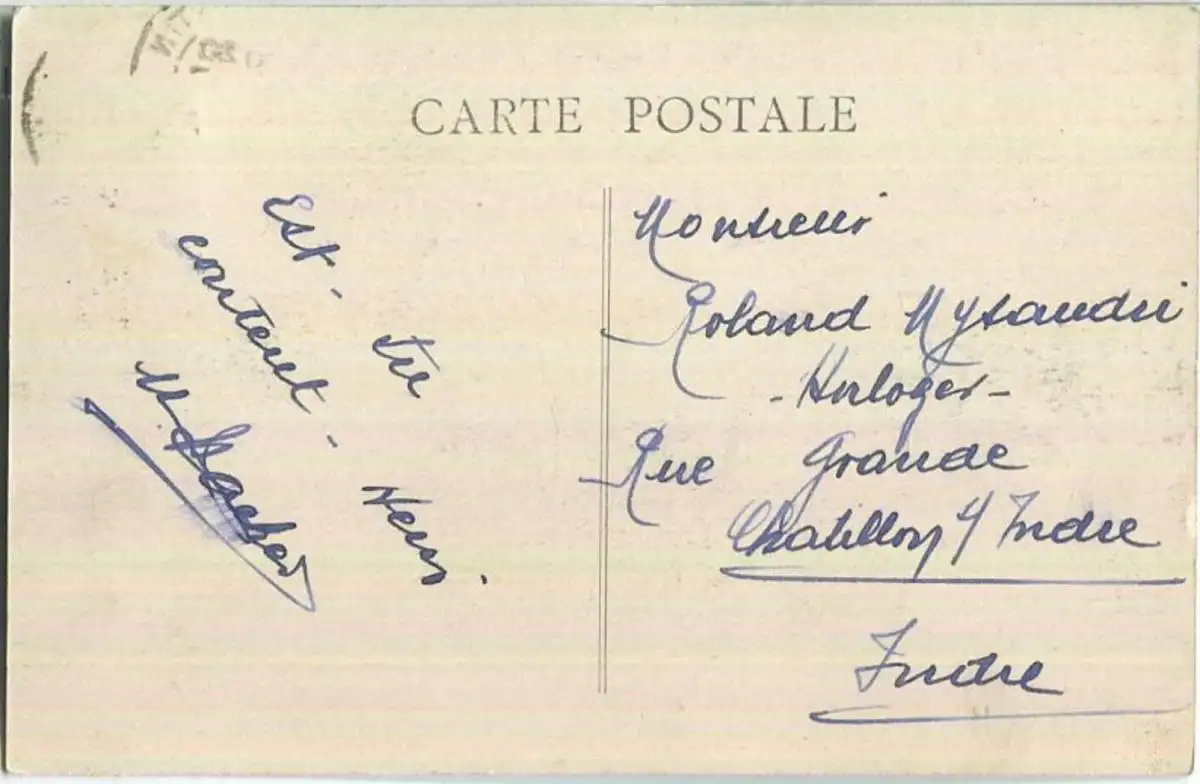 CARTE POSTALE
Est-tu
content-
Monsieur
Roland
- Horloger -
Rue Grande
Chatillon s/ Indre
Indre